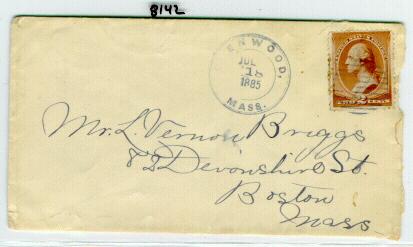 8142
ENWOOD,
JUL
18
1885
MASS.
Mr. L. Vernon Briggs
82 Devonshire St.
Boston
Mass